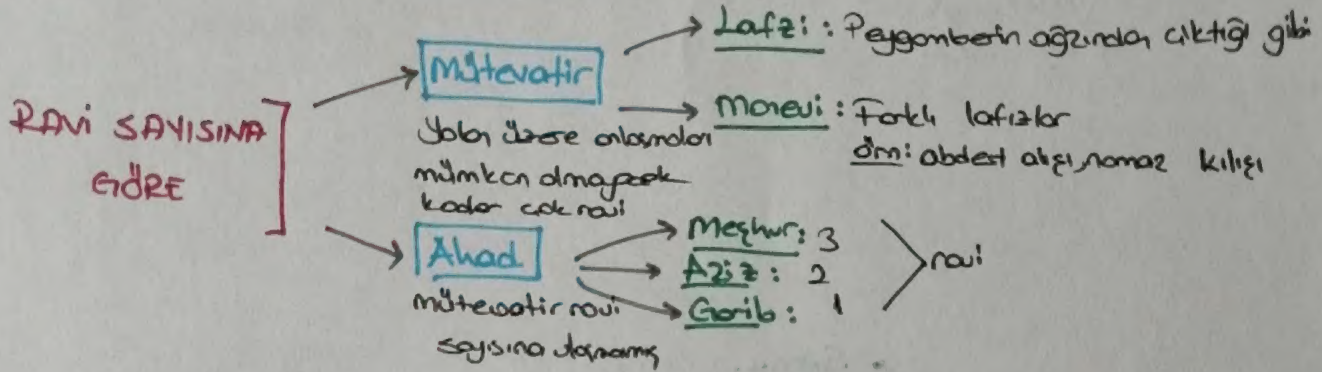 RAVİ SAYISINA
GÖRE
Mütevatir
Yalan üzere anlaşmaları
mümkün olmayacak
kadar çok ravi
Lafzi : Peygamberin ağzından çıktığı gibi
Manevi : Farklı lafızlar
örn: abdest alışı, namaz kılışı
Ahad
mütevatir ravi
sayısına ulaşmamış
Meşhur: 3
Aziz : 2
Garib : 1
ravi